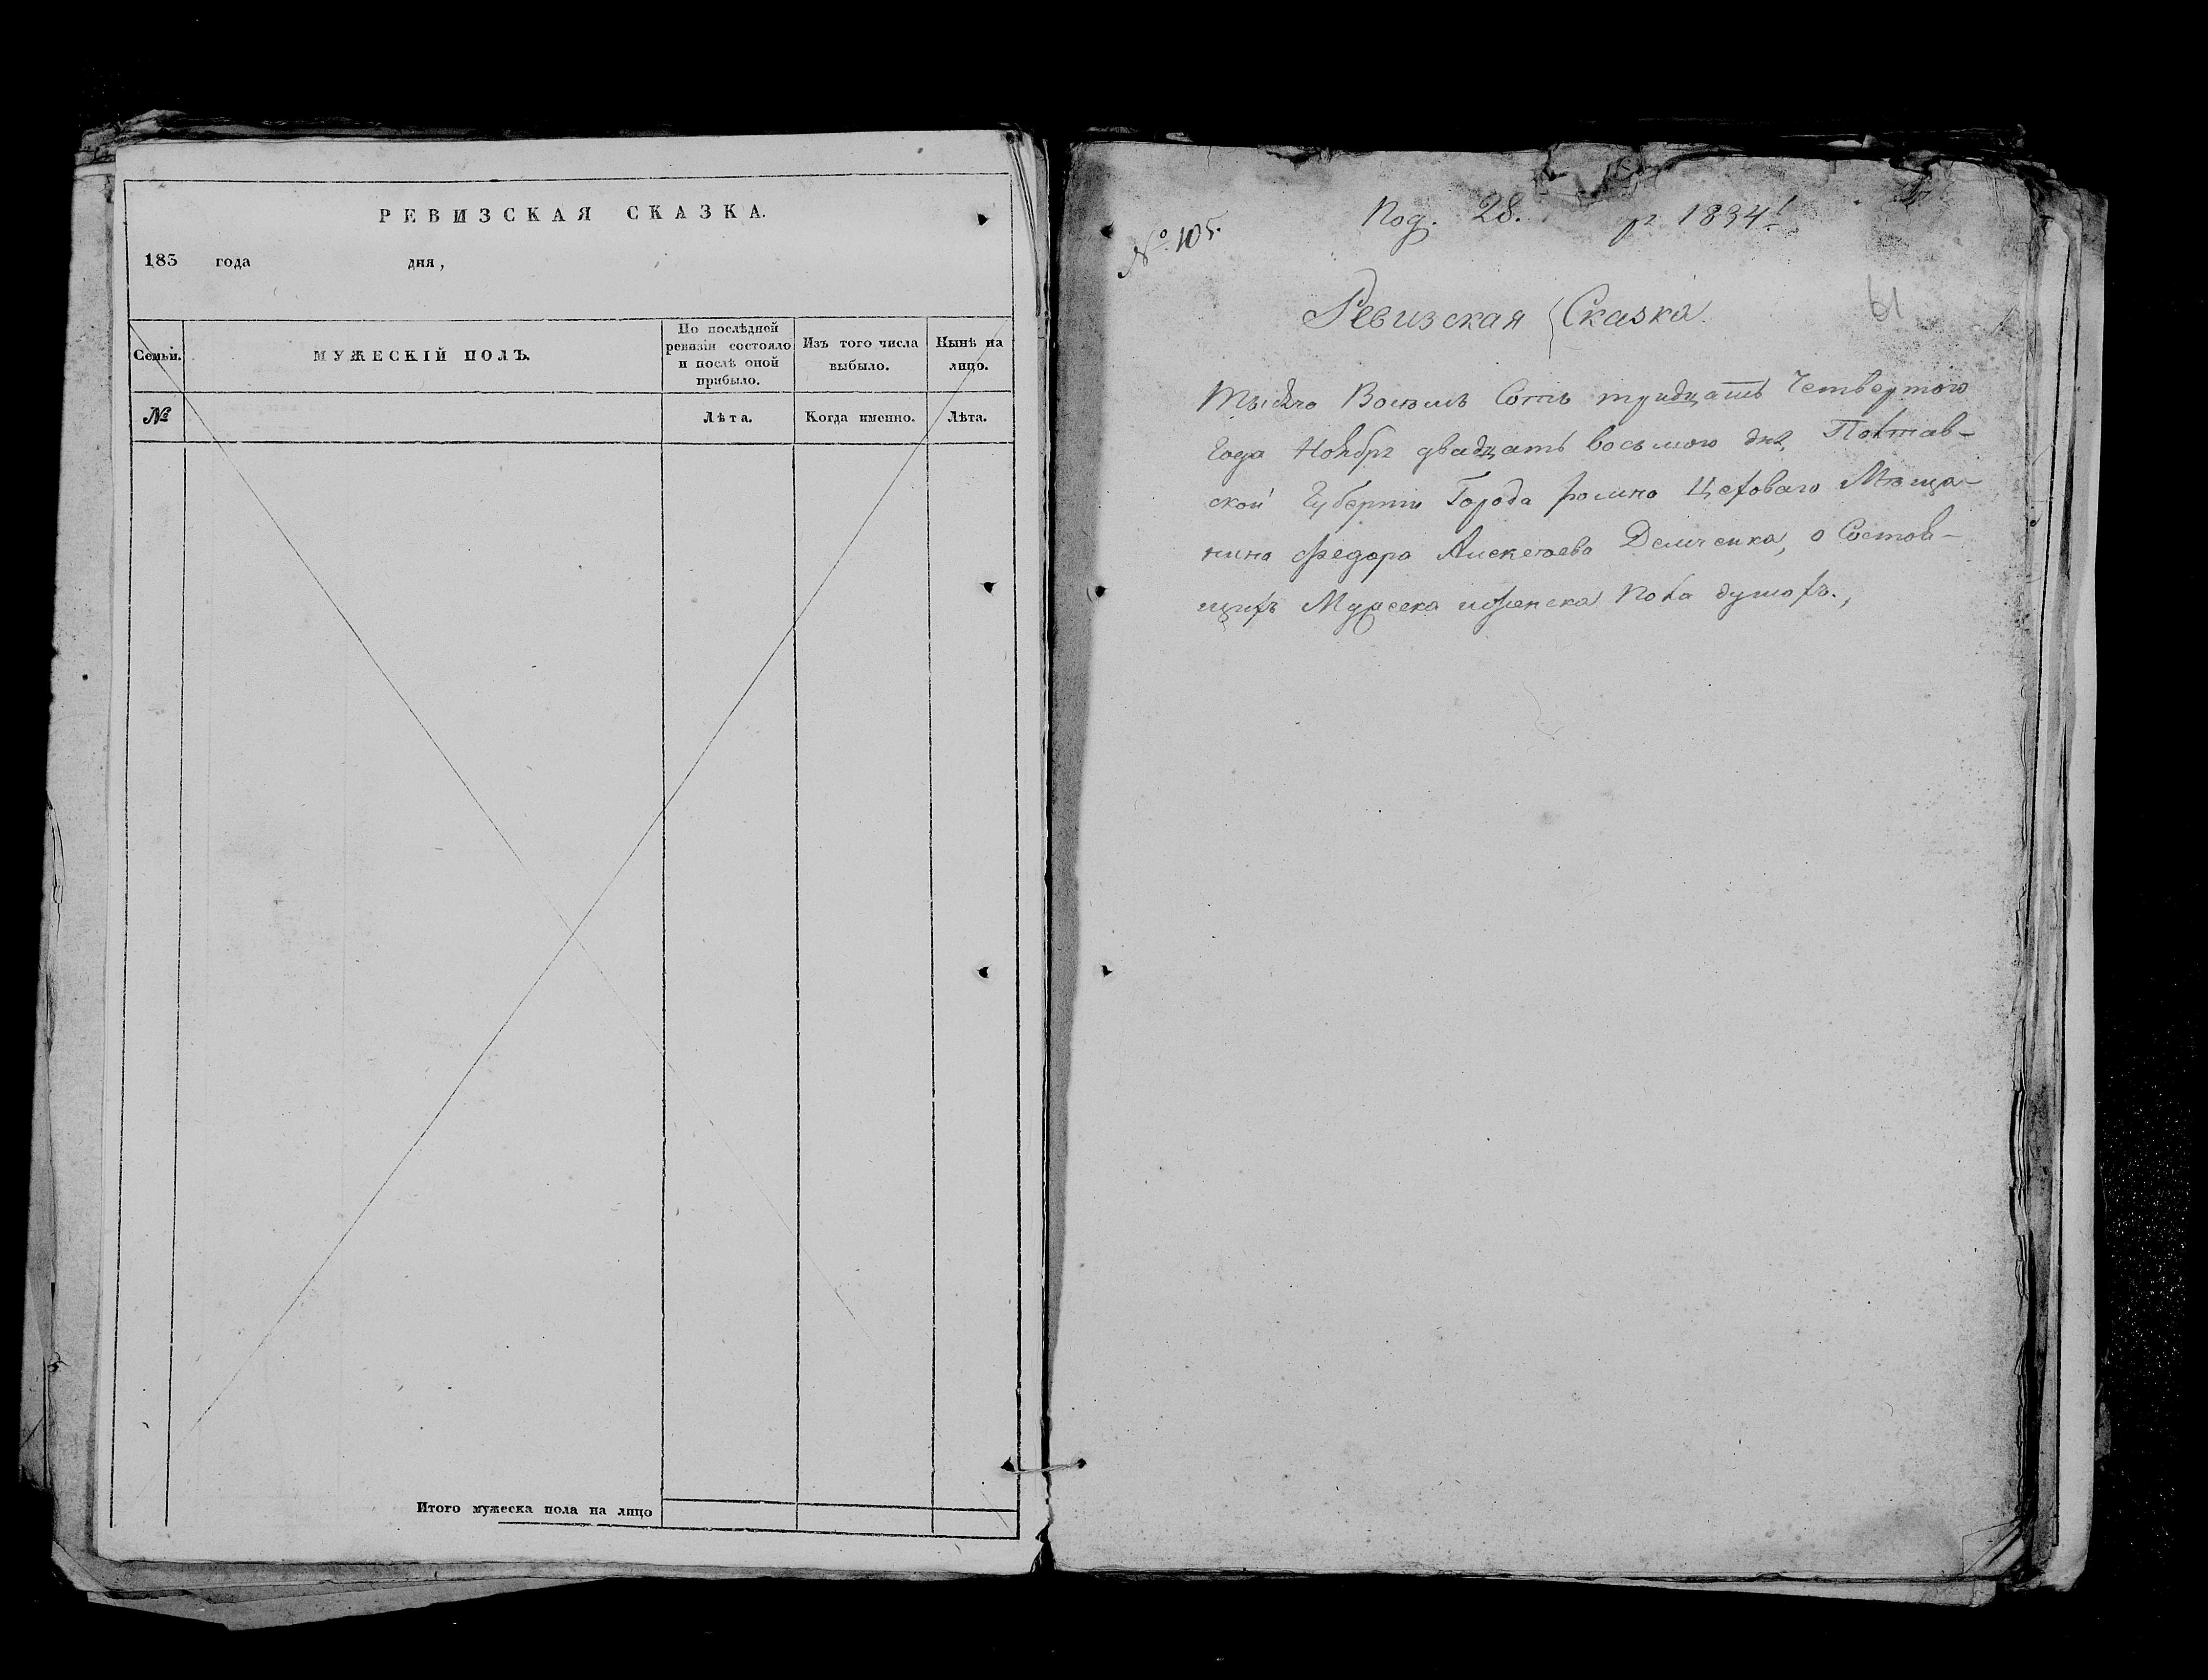 РЕВИЗСКАЯ СКАЗКА.
183 года дня,
Семьи. МУЖЕСКІЙ ПОЛЪ. По послѣдней ревизіи состояло и послѣ оной прибыло. Изъ того числа выбыло. Нынѣ на лицо.
№ Лѣта. Когда именно. Лѣта.
Итого мужеска пола на лицо
№ 105.
Под. 28. 1834
61
Ревизская Сказка.
Тысяча Восемь Сотъ тридцать Четвертого
Года Ноября двадцать восьмого дня, Полтав-
ской Губерніи Города Ромна Цехового Меща-
нина Федора Алексеева Демченка, о Состоя-
щихъ Мужеска иженска Пола душахъ.,